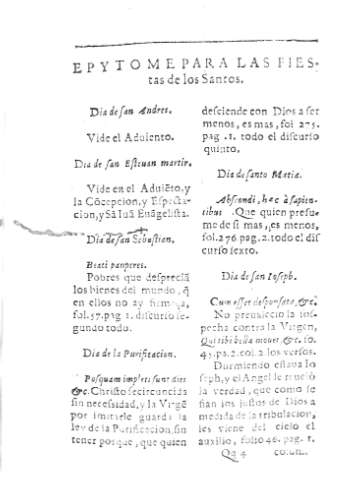 EPYTOME PARA LAS FIES-
tas de los Santos.
Dia de san Andres.
Vide el Aduiento.
Dia de san Esteuan martir.
Vide en el Aduiẽto, y
la Cõcepcion, y Expecta-
cion, y Sã Iuã Euãgelista.
Dia de san Sebastian.
Beati pauperes.
Pobres que desprecia
los bienes del mundo, q̃
en ellos no ay firmeça,
fol. 57. pag 1. discurso se-
gundo todo.
Dia de la Purificacion.
Posquam impleti sunt dies
&c. Christo se circuncida
sin necesidad, y la Virgẽ
por imitarle guarda la
ley de la Purificacion, sin
tener porque, que quien
desciende con Dios a ser
menos, es mas, fol 275.
pag. 1. todo el discurso
quinto.
Dia de santo Matia.
Abscondi, hec à sapien-
tibus. Que quien presu-
me de si mas, es menos,
fol. 276 pag. 2. todo el dis
curso sexto.
Dia de san Ioseph.
Cum esset desponsata, &c.
No preualecio la sos-
pecha contra la Virgen,
&c. fo.
45. pa. 2. col. 2 los versos.
Durmiendo estaua Io
seph, y el Angel le reuelò
la verdad, que como se
fian los justos de Dios a
medida de la tribulacion,
les viene del cielo el
auxilio, folio 46. pag. 1.
Qq 4 colun.